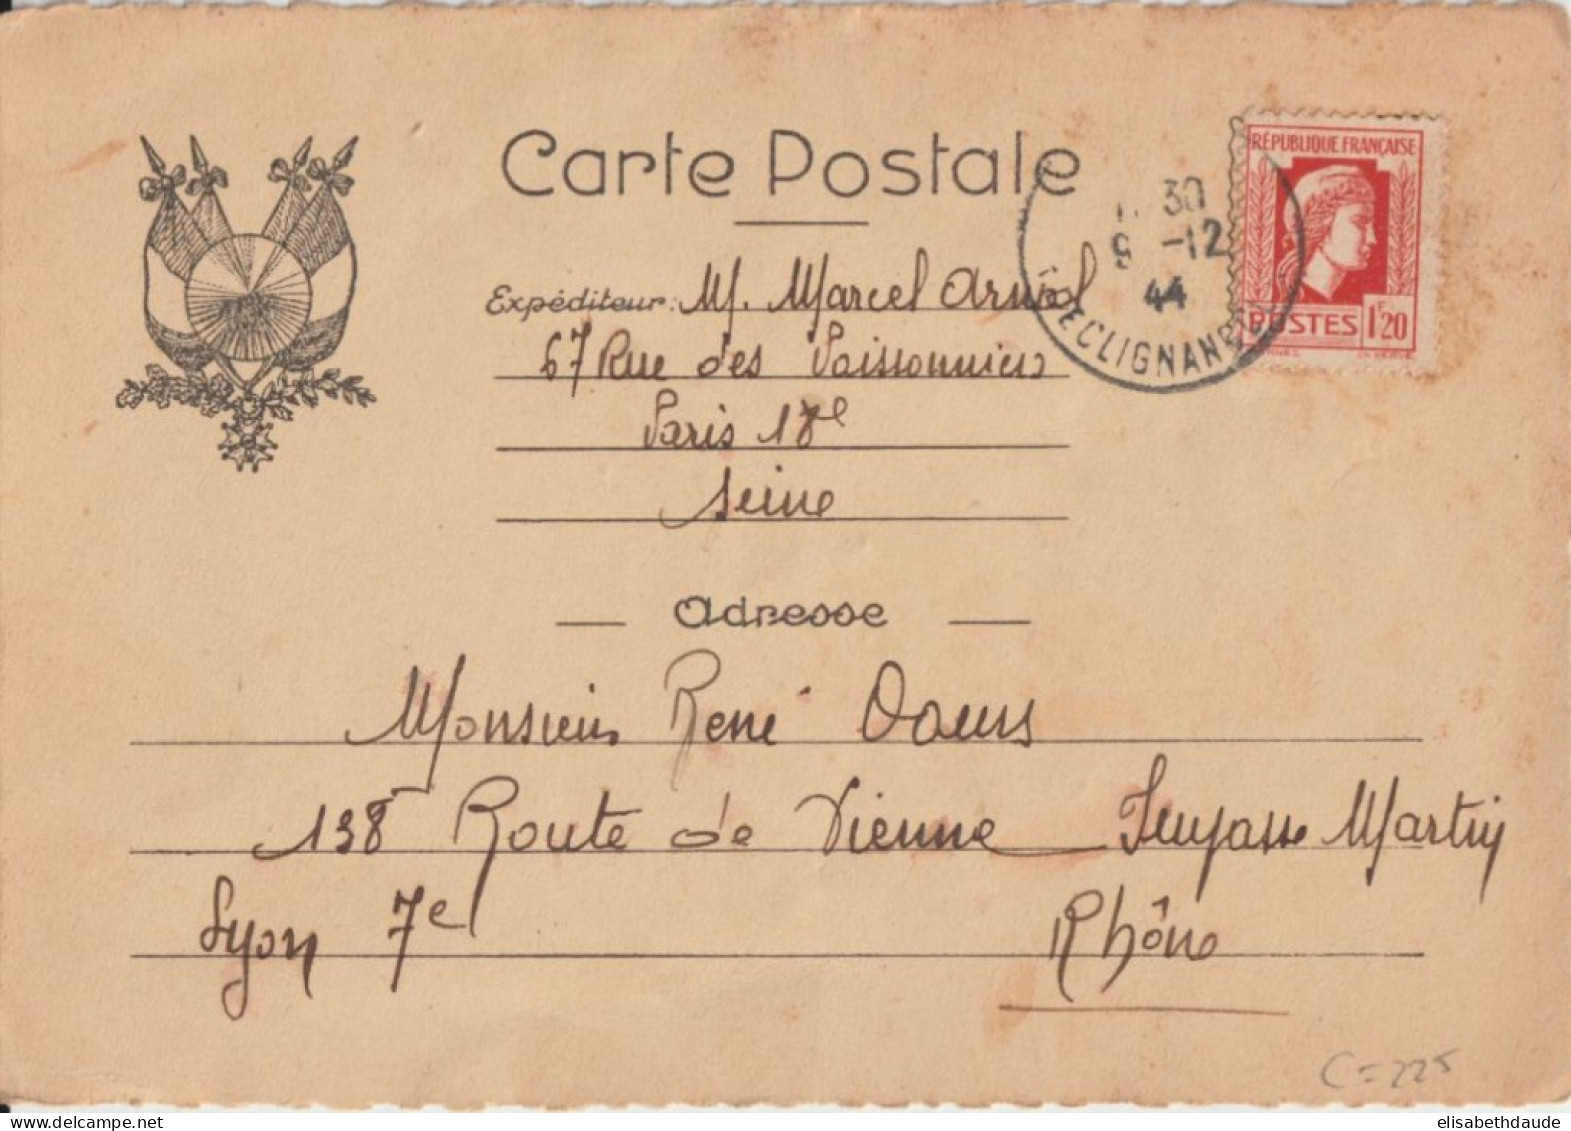 Carte Postale
RÉPUBLIQUE FRANÇAISE
POSTES 1F20
30
9 -12
44
CLIGNAN
Expéditeur: M. Marcel Arnol
67 Rue des Poissonniers
Paris 18e
Seine
Adresse
Monsieur René Daeus
138 Route de Vienne Impasse Martin
Lyon 7e Rhône
C = 225
elisabethdaude